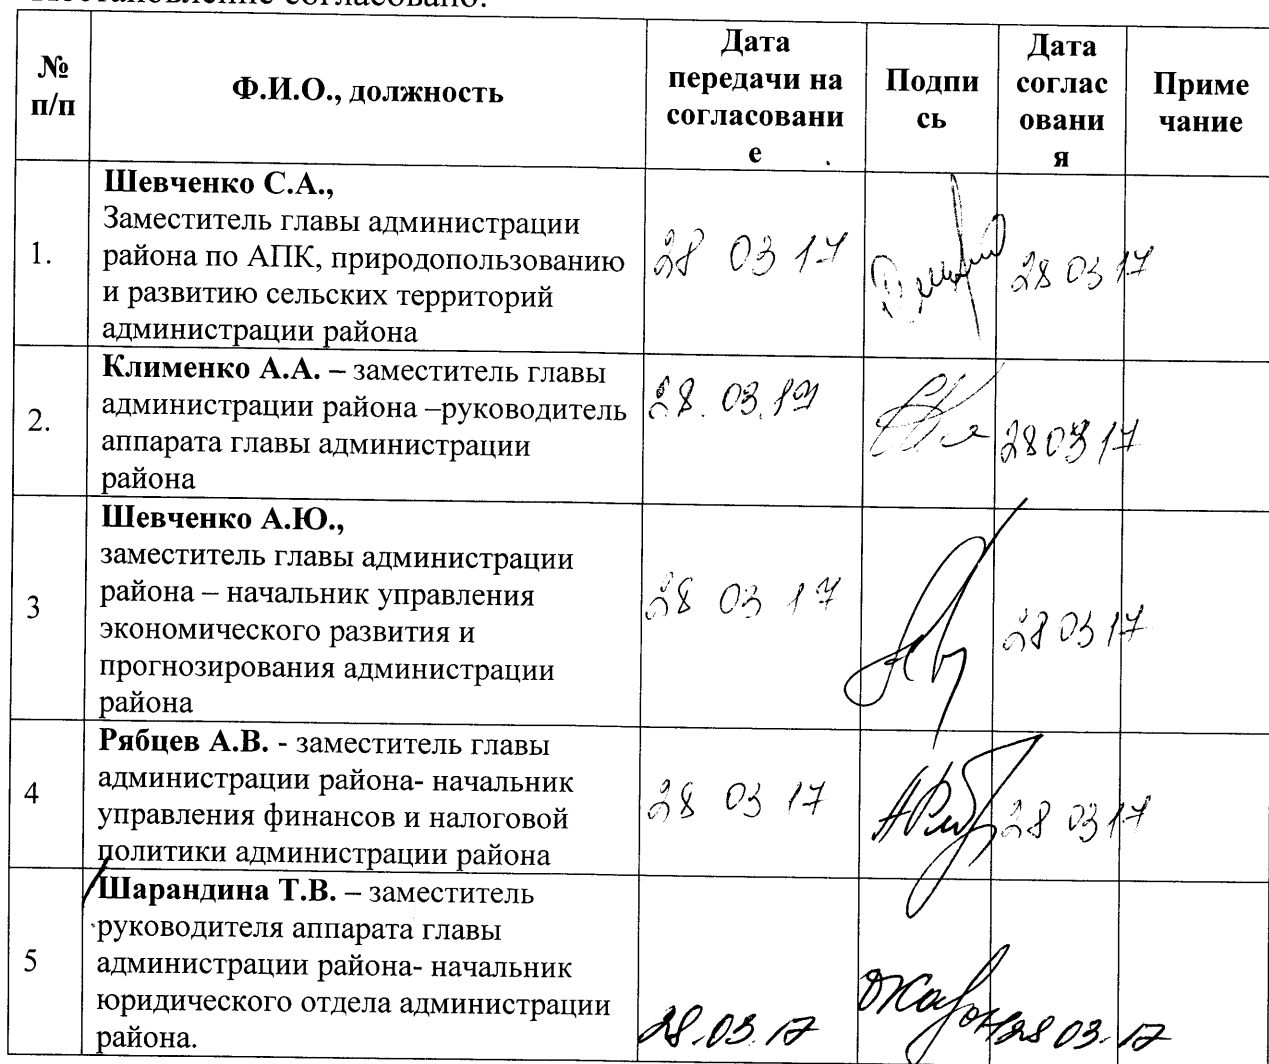 Постановление согласовано:
№ п/п
Ф.И.О., должность
Дата передачи на согласовани е
Подпи сь
Дата соглас овани я
Приме чание
1.
Шевченко С.А.,
Заместитель главы администрации
района по АПК, природопользованию
и развитию сельских территорий
администрации района
28 03 17
28 03 17
2.
Клименко А.А. – заместитель главы
администрации района –руководитель
аппарата главы администрации
района
28.03.17
28 03 17
3
Шевченко А.Ю.,
заместитель главы администрации
района – начальник управления
экономического развития и
прогнозирования администрации
района
28 03 17
28 03 17
4
Рябцев А.В. - заместитель главы
администрации района- начальник
управления финансов и налоговой
политики администрации района
28 03 17
28 03 17
5
Шарандина Т.В. – заместитель
руководителя аппарата главы
администрации района- начальник
юридического отдела администрации
района.
28.03.17
28 03.17